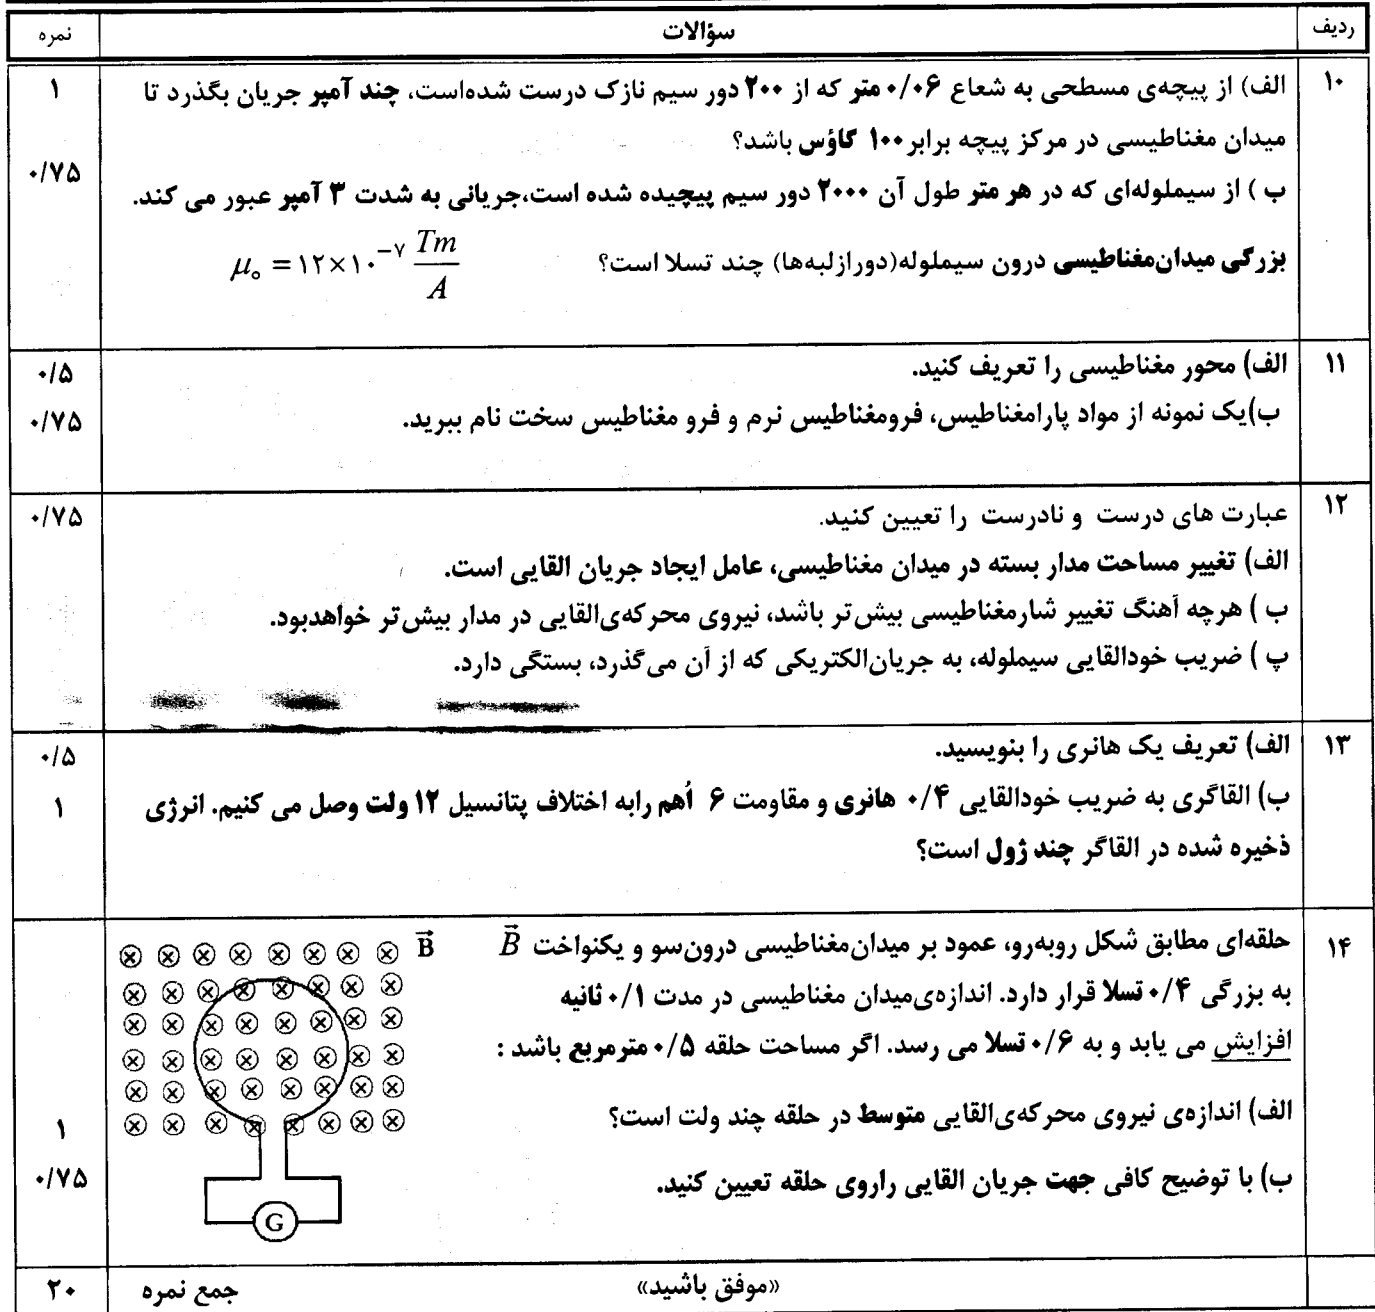 ردیف	سؤالات	نمره
۱۰	الف) از پیچه‌ی مسطحی به شعاع ۰/۰۶ متر که از ۲۰۰ دور سیم نازک درست شده‌است، چند آمپر جریان بگذرد تا	۱
میدان مغناطیسی در مرکز پیچه برابر ۱۰۰ گاؤس باشد؟
ب ) از سیملوله‌ای که در هر متر طول آن ۲۰۰۰ دور سیم پیچیده شده است،جریانی به شدت ۳ آمپر عبور می کند.	۰/۷۵
بزرگی میدان‌مغناطیسی درون سیملوله(دورازلبه‌ها) چند تسلا است؟	μ₀ = ۱۲×۱۰⁻⁷ Tm/A
۱۱	الف) محور مغناطیسی را تعریف کنید.	۰/۵
ب)یک نمونه از مواد پارامغناطیس، فرومغناطیس نرم و فرو مغناطیس سخت نام ببرید.	۰/۷۵
۱۲	عبارت های درست و نادرست را تعیین کنید.	۰/۷۵
الف) تغییر مساحت مدار بسته در میدان مغناطیسی، عامل ایجاد جریان القایی است.
ب ) هرچه آهنگ تغییر شارمغناطیسی بیش‌تر باشد، نیروی محرکه‌ی‌القایی در مدار بیش‌تر خواهدبود.
پ ) ضریب خودالقایی سیملوله، به جریان‌الکتریکی که از آن می‌گذرد، بستگی دارد.
۱۳	الف) تعریف یک هانری را بنویسید.	۰/۵
ب) القاگری به ضریب خودالقایی ۰/۴ هانری و مقاومت ۶ اُهم رابه اختلاف پتانسیل ۱۲ ولت وصل می کنیم. انرژی	۱
ذخیره شده در القاگر چند ژول است؟
۱۴	حلقه‌ای مطابق شکل روبه‌رو، عمود بر میدان‌مغناطیسی درون‌سو و یکنواخت B⃗	B⃗
به بزرگی ۰/۴ تسلا قرار دارد. اندازه‌ی‌میدان مغناطیسی در مدت ۰/۱ ثانیه
افزایش می یابد و به ۰/۶ تسلا می رسد. اگر مساحت حلقه ۰/۵ مترمربع باشد :
الف) اندازه‌ی نیروی محرکه‌ی‌القایی متوسط در حلقه چند ولت است؟	۱
ب) با توضیح کافی جهت جریان القایی راروی حلقه تعیین کنید.	۰/۷۵
G
«موفق باشید»	جمع نمره	۲۰